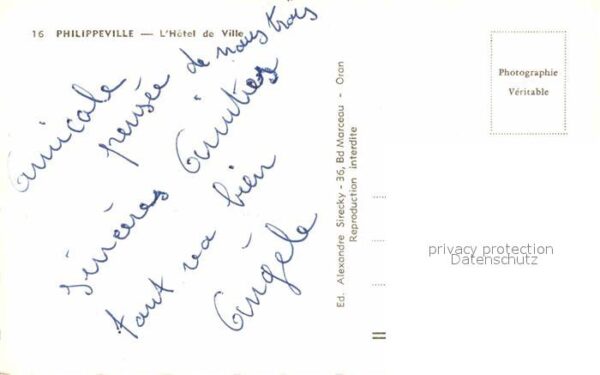 16 PHILIPPEVILLE — L'Hôtel de Ville
Amicale pensée de nous trois
Sincères Amitiés
tout va bien
Angèle
Ed. Alexandre Sirecky - 36, Bd Marceau - Oran
Reproduction interdite
Photographie
Véritable
privacy protection
Datenschutz